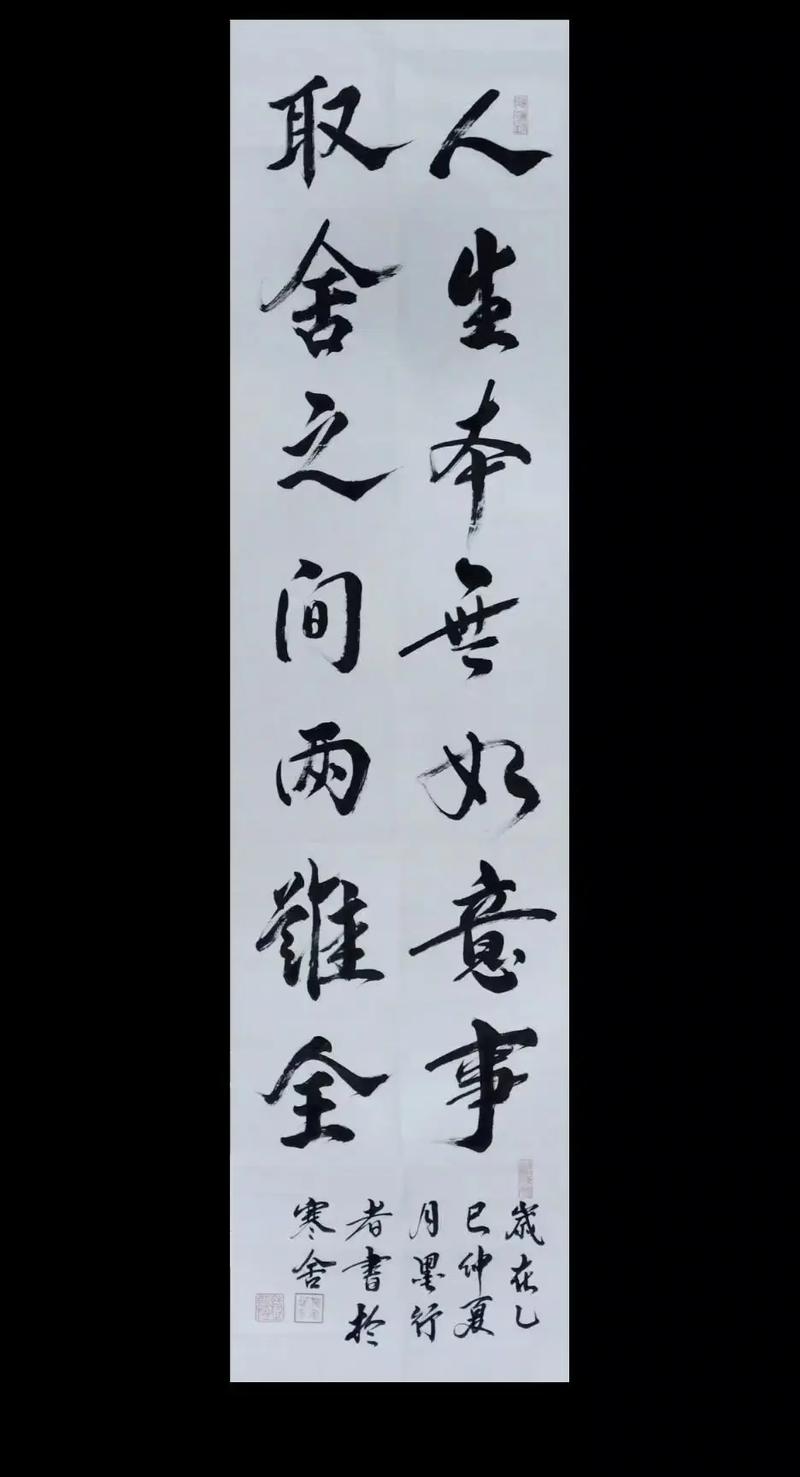 人生本無如意事
取舍之间兩難全
歲在乙
巳仲夏
月墨行
者書於
寒舍